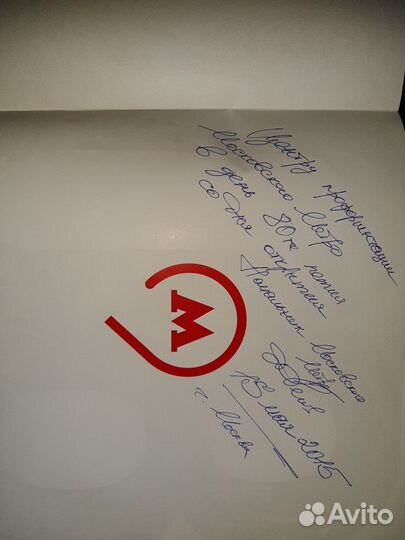 Центру профориентации
Московского Метро
в день 80ти летия
со дня открытия
Начальник Московского
Метро
15 мая 2015
г. Москва
М
Avito